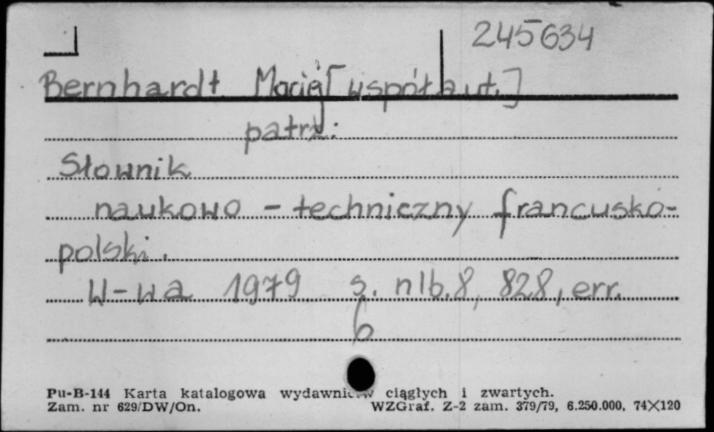 245634
Bernhardt Maciej [współaut.]
patrz:
Słownik
naukowo-techniczny francusko-
polski.
W-wa 1979 s. nlb. 8, 828, err.
6
Pu-B-144 Karta katalogowa wydawnictw ciągłych i zwartych.
Zam. nr 629/DW/On. WZGraf. Z-2 zam. 379/79, 6.250.000, 74×120